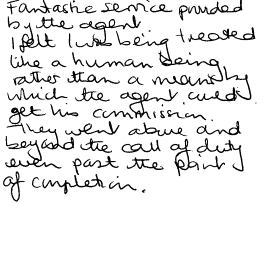 Fantastic service provided
by the agent
I felt I was being treated
like a human being
rather than a means by
which the agent could
get his commission.
They went above and
beyond the call of duty
even past the point
of completion.